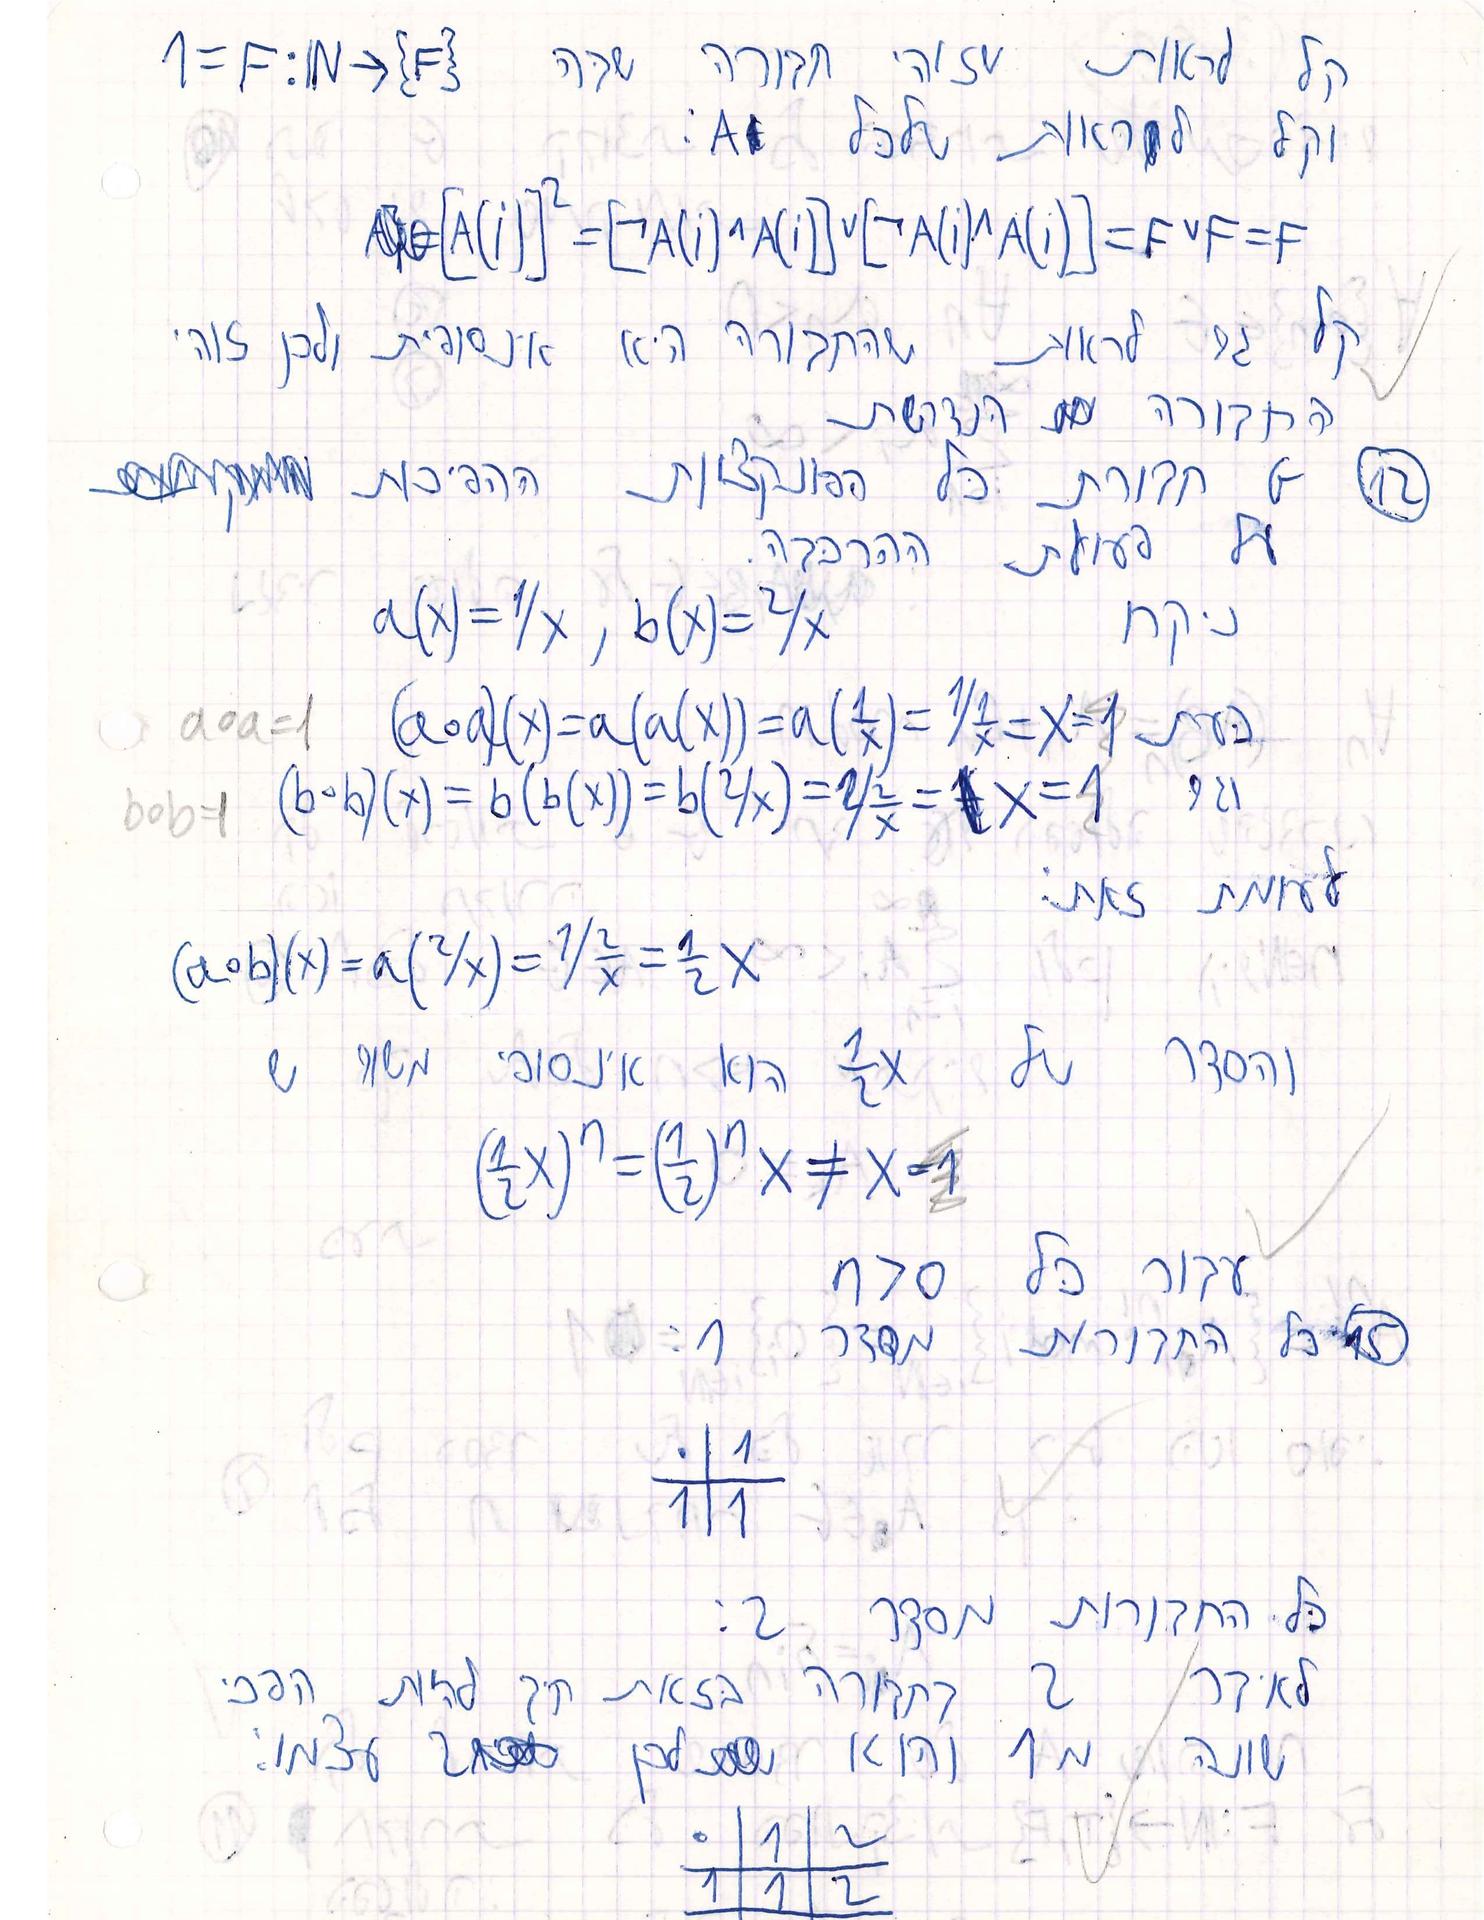 קל לראות שזוהי חבורה שבה 1=F:ℕ→{F}
וקל לראות שלכל A:
[A(i)]²=[¬A(i)∧A(i)]∨[¬A(i)∧A(i)]=F∨F=F
קל גם לראות שהחבורה היא אינסופית ולכן זוהי
החבורה הנדרשת
⑫ G חבורת כל הפונקצאות ההפיכות
על פעולת ההרכבה.
ניקח a(x)=1/x , b(x)=2/x
כעת (a∘a)(x)=a(a(x))=a(1/x)=1/(1/x)=x=1 a∘a=1
וגם (b∘b)(x)=b(b(x))=b(2/x)=2/(2/x)=x=1 b∘b=1
לעומת זאת:
(a∘b)(x)=a(2/x)=1/(2/x)=½x
והסדר של ½x הוא אינסופי משום ש
(½x)ⁿ=(½)ⁿx≠x=1
עבור כל n>0
⑮ כל החבורות מסדר 1:
· | 1
1 | 1
כל החבורות מסדר 2:
לאיבר 2 בחבורה כזאת חיב להיות הפכי
שונה מ 1 והוא לכן 2 עצמו:
· | 1 | 2
1 | 1 | 2